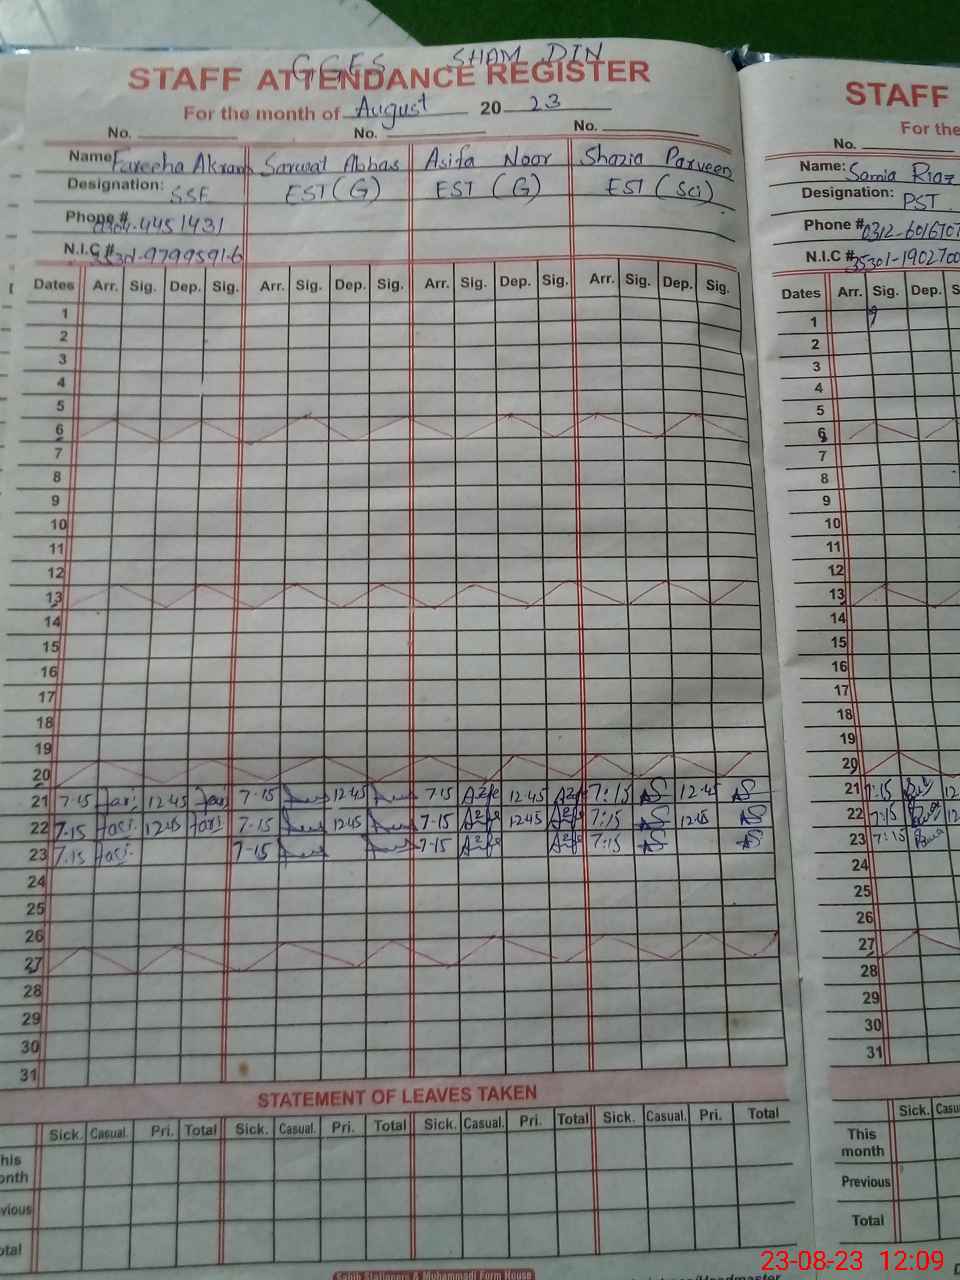 GGES SHAM DIN
STAFF ATTENDANCE REGISTER
For the month of August 20 23
No. No. No.
Name Fareeha Akram Sarwat Abbas Asifa Noor Shazia Parveen
Designation: SSE EST (G) EST (G) EST (Sci)
Phone # 4451431
N.I.C #
Dates Arr. Sig. Dep. Sig. Arr. Sig. Dep. Sig. Arr. Sig. Dep. Sig. Arr. Sig. Dep. Sig.
1
2
3
4
5
6
7
8
9
10
11
12
13
14
15
16
17
18
19
20
21 7-15 12-45 7-15 12-45 7-15 12-45 7:15 12-45
22 7-15 12-45 7-15 12-45 7-15 12-45 7:15 12-45
23 7-15 7-15 7-15 7:15
24
25
26
27
28
29
30
31
STATEMENT OF LEAVES TAKEN
Sick. Casual. Pri. Total Sick. Casual. Pri. Total Sick. Casual. Pri. Total Sick. Casual. Pri. Total
his
onth
vious
otal
STAFF
For the
No.
Name: Samia Riaz
Designation: PST
Phone # 0312-601670
N.I.C # 35301-1902700
Dates Arr. Sig. Dep. S
1
2
3
4
5
6
7
8
9
10
11
12
13
14
15
16
17
18
19
20
21 7:15 12
22 7:15 12
23 7:15
24
25
26
27
28
29
30
31
Sick. Casu
This
month
Previous
Total
Headmaster
23-08-23 12:09